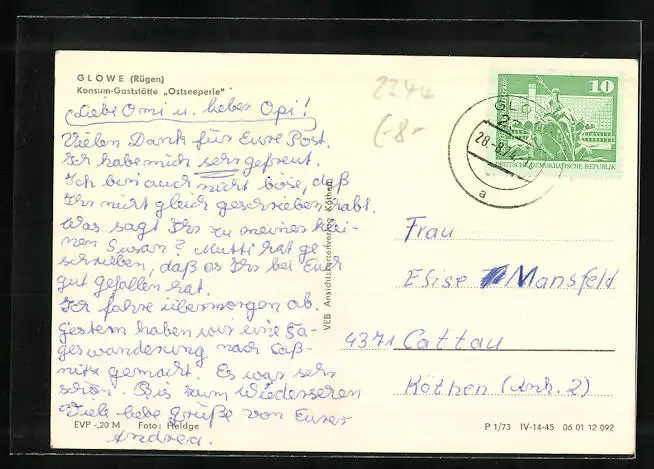 GLOWE (Rügen)
Konsum-Gaststätte „Ostseeperle"
Liebe Omi u. lieber Opi!
Vielen Dank für Eure Post.
Ich habe mich sehr gefreut.
Ich bin auch nicht böse, daß
Ihr nicht gleich geschrieben habt.
Was sagt Ihr zu meiner klei-
nen Susan? Mutti hat ge
schrieben, daß es Ihr bei Euch
gut gefallen hat.
Ich fahre übermorgen ab.
Gestern haben wir eine Ta-
geswanderung nach Saß-
nitz gemacht. Es war sehr
schön. Bis zum Wiedersehen
Viele liebe Grüße von Eurer
Andrea.
EVP -,20 M Foto: Heldge
VEB Ansichtskartenverlag Köthen
2244
(-8-
10
DEUTSCHE DEMOKRATISCHE REPUBLIK
GLO
28.-8.74
a
Frau
Elise Mansfeld
4371 Cattau
Köthen (Anh. 2)
P 1/73 IV-14-45 06 01 12 092